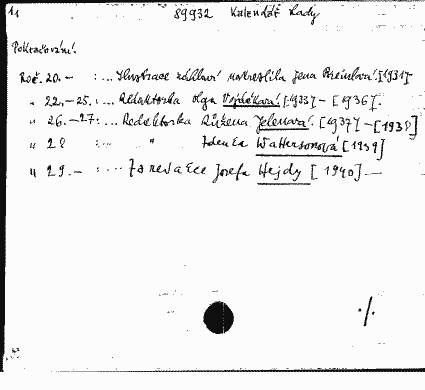 11 89932 Kalendář Lady
Pokračování.
Roč. 20.- : ... Ilustrace záhlaví nakreslila Jena [1931]-
" 22.-25. : ... Redaktorka Olga [1933] - [1936].
" 26.-27: ... Redaktorka Růžena Jelenová. [1937] - [1938]
" 28 : ... " Zdenka Wattersonová [1939]
" 29.- : ... Za redakce Josefa Hejdy [1940] -
./.